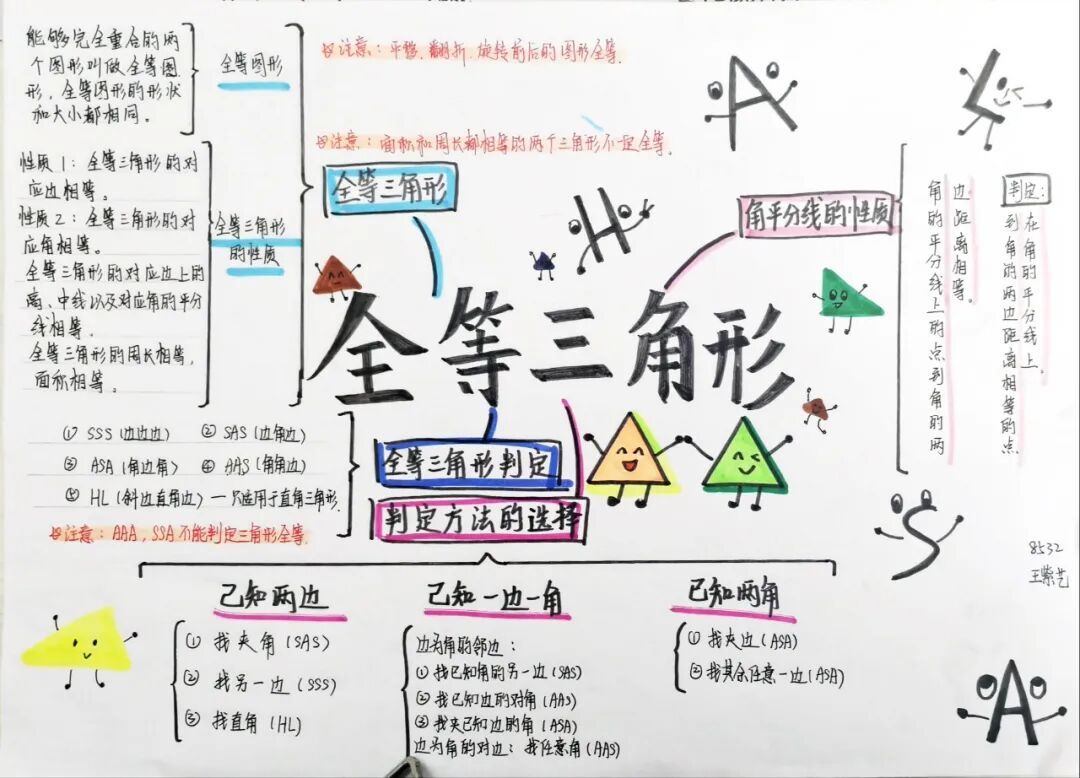 能够完全重合的两
个图形叫做全等图
形，全等图形的形状
和大小都相同。
全等图形
注意：平移.翻折.旋转前后的图形全等.
注意：面积和周长都相等的两个三角形不一定全等.
性质1：全等三角形的对
应边相等。
性质2：全等三角形的对
应角相等。
全等三角形的对应边上的
高、中线以及对应角的平分
线相等。
全等三角形的周长相等，
面积相等。
全等三角形
的性质
全等三角形
角平分线的性质
判定：
在角的平分线上.
到角的两边距离相等的点
边距离相等。
角的平分线上的点到角的两
全等三角形
① SSS（边边边） ② SAS（边角边）
③ ASA（角边角） ④ AAS（角角边）
⑤ HL（斜边直角边）一只适用于直角三角形.
注意：AAA，SSA不能判定三角形全等.
全等三角形判定
判定方法的选择
已知两边
① 找夹角（SAS）
② 找另一边（SSS）
③ 找直角（HL）
已知一边一角
边为角的邻边：
① 找已知角的另一边（SAS）
② 找已知边的对角（AAS）
③ 找夹已知边的角（ASA）
边为角的对边：找任意角（AAS）
已知两角
① 找夹边（ASA）
② 找其余任意一边（ASA）
A
L
H
S
A
8532
王紫艺